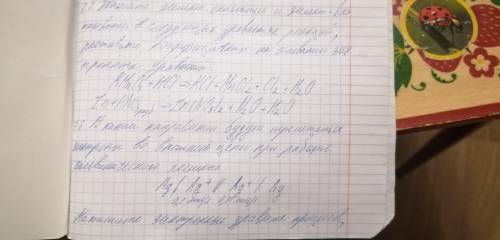 окислитель и
в следующих уравнениях реакций,
расставить коэффициенты на основании
уравнений
KMnO4+HCl → KCl+MnCl2+Cl2+H2O
Zn+HNO3 → Zn(NO3)2+N2O+H2O
В каком направлении будут перемещаться
электроны во внешней цепи при работе
гальванического элемента
Ag | Ag+ || Ag+ | Ag
Напишите электронные уравнения процессов,